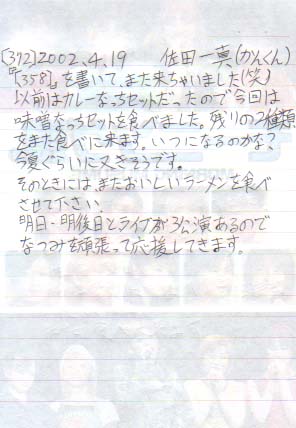 [372]2002.4.19 佐田一真(かんくん)
『[358]』を書いて、また来ちゃいました(笑)
以前はカレーなっちセットだったので今回は
味噌なっちセットを食べました。残りの2種類
をまた食べに来ます。いつになるのかな?
今夏ぐらいに又きそうです。
そのときには、またおいしいラーメンを食べ
させて下さい。
明日・明後日とライブが3公演あるので
なつみを頑張って応援してきます。